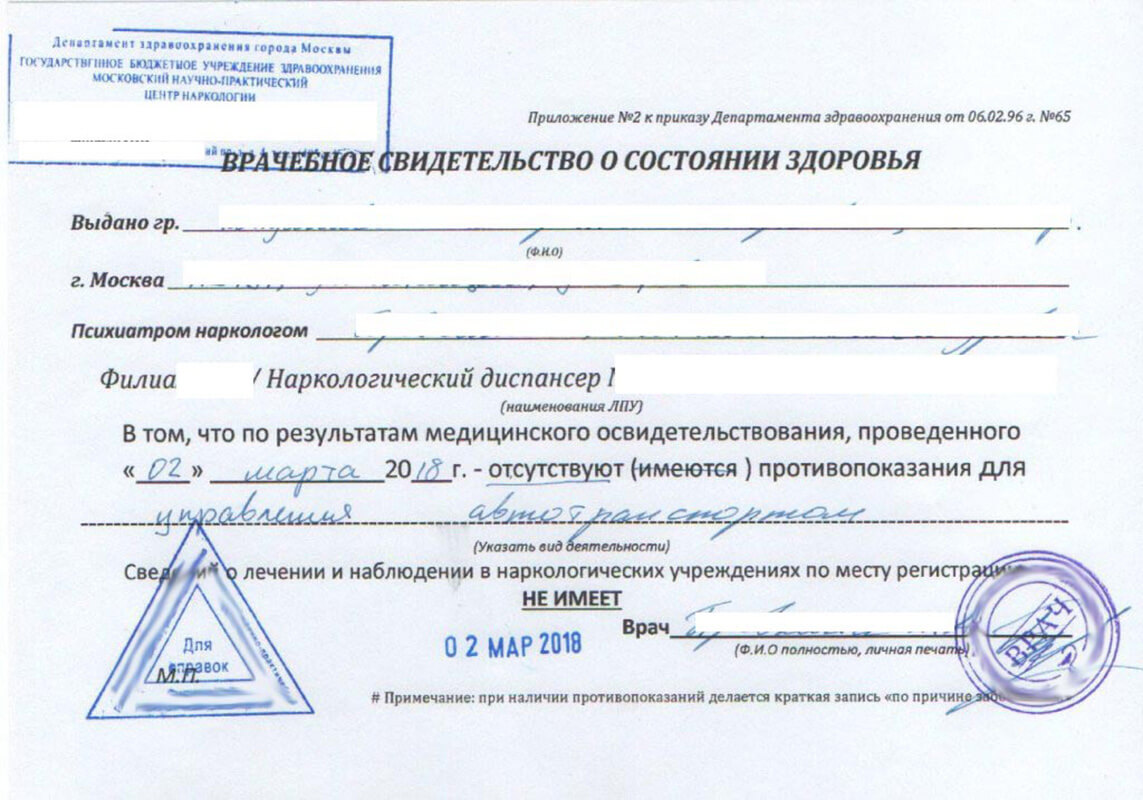 Департамент здравоохранения города Москвы
ГОСУДАРСТВЕННОЕ БЮДЖЕТНОЕ УЧРЕЖДЕНИЕ ЗДРАВООХРАНЕНИЯ
МОСКОВСКИЙ НАУЧНО-ПРАКТИЧЕСКИЙ
ЦЕНТР НАРКОЛОГИИ
Приложение №2 к приказу Департамента здравоохранения от 06.02.96 г. №65
ВРАЧЕБНОЕ СВИДЕТЕЛЬСТВО О СОСТОЯНИИ ЗДОРОВЬЯ
Выдано гр.
(Ф.И.О)
г. Москва
Психиатром наркологом
Филиа / Наркологический диспансер
(наименования ЛПУ)
В том, что по результатам медицинского освидетельствования, проведенного
« 02 » марта 2018 г. - отсутствуют (имеются ) противопоказания для
управления автотранспортом
(Указать вид деятельности)
о лечении и наблюдении в наркологических учреждениях по месту регистрации
НЕ ИМЕЕТ
Врач
(Ф.И.О полностью, личная печать)
02 МАР 2018
Для
справок
М.П.
ВРАЧ
# Примечание: при наличии противопоказаний делается краткая запись «по причине